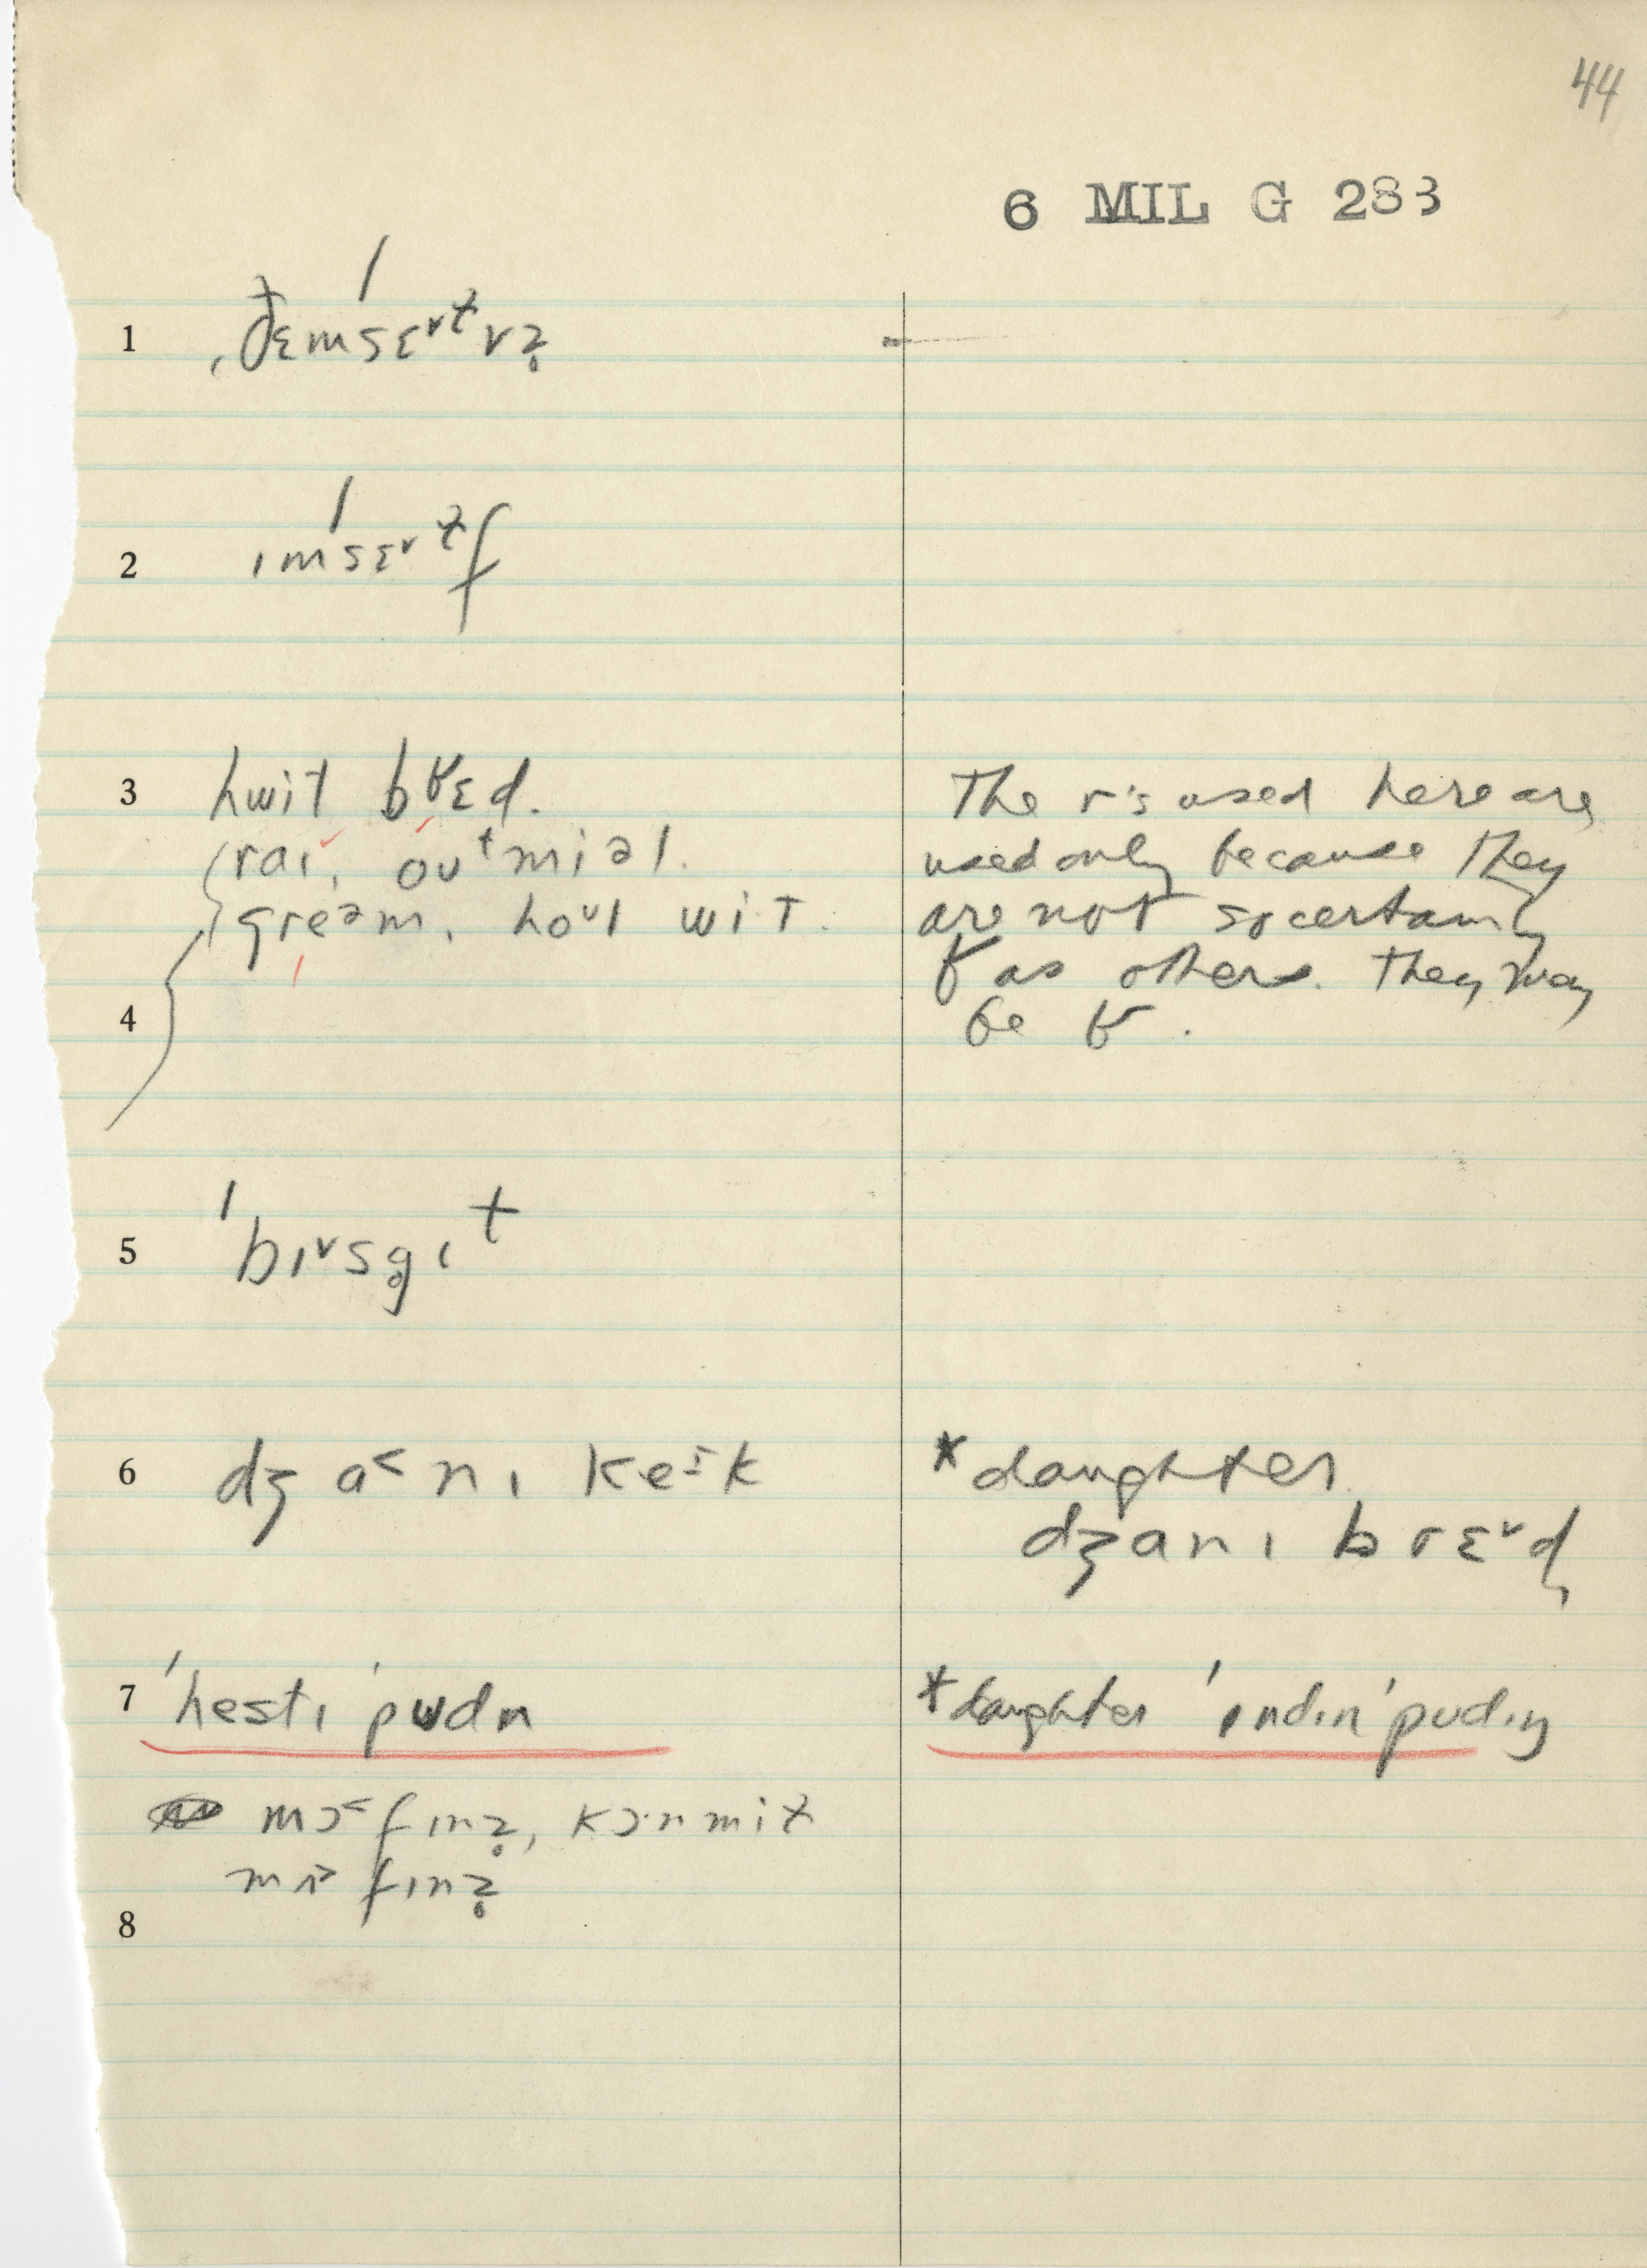 44
6 MIL G 283
1 ˌðɛmsɛᵛᵗvz̥
2 ɪmsɛᵛᵗf
3 hwit bɽɛd.
raɪ, oʊᵗmiəl.
greəm, hoᵘl wit.
The r's used here are
used only because they
are not so certainly
ɽ as others. They may
be ɽ.
4
5 ˈbɪᵛsg̥ɪᵗ
6 dʒa˂nɪ keɪk
*daughter
dʒanɪ brɛᵛd
7 ˈhestɪ ˈpʊdn
*daughter ˈɪndɪn ˈpʊdɪŋ
mɔ˂fɪnz̥, kɔ·nmit
fɪnz̥
8